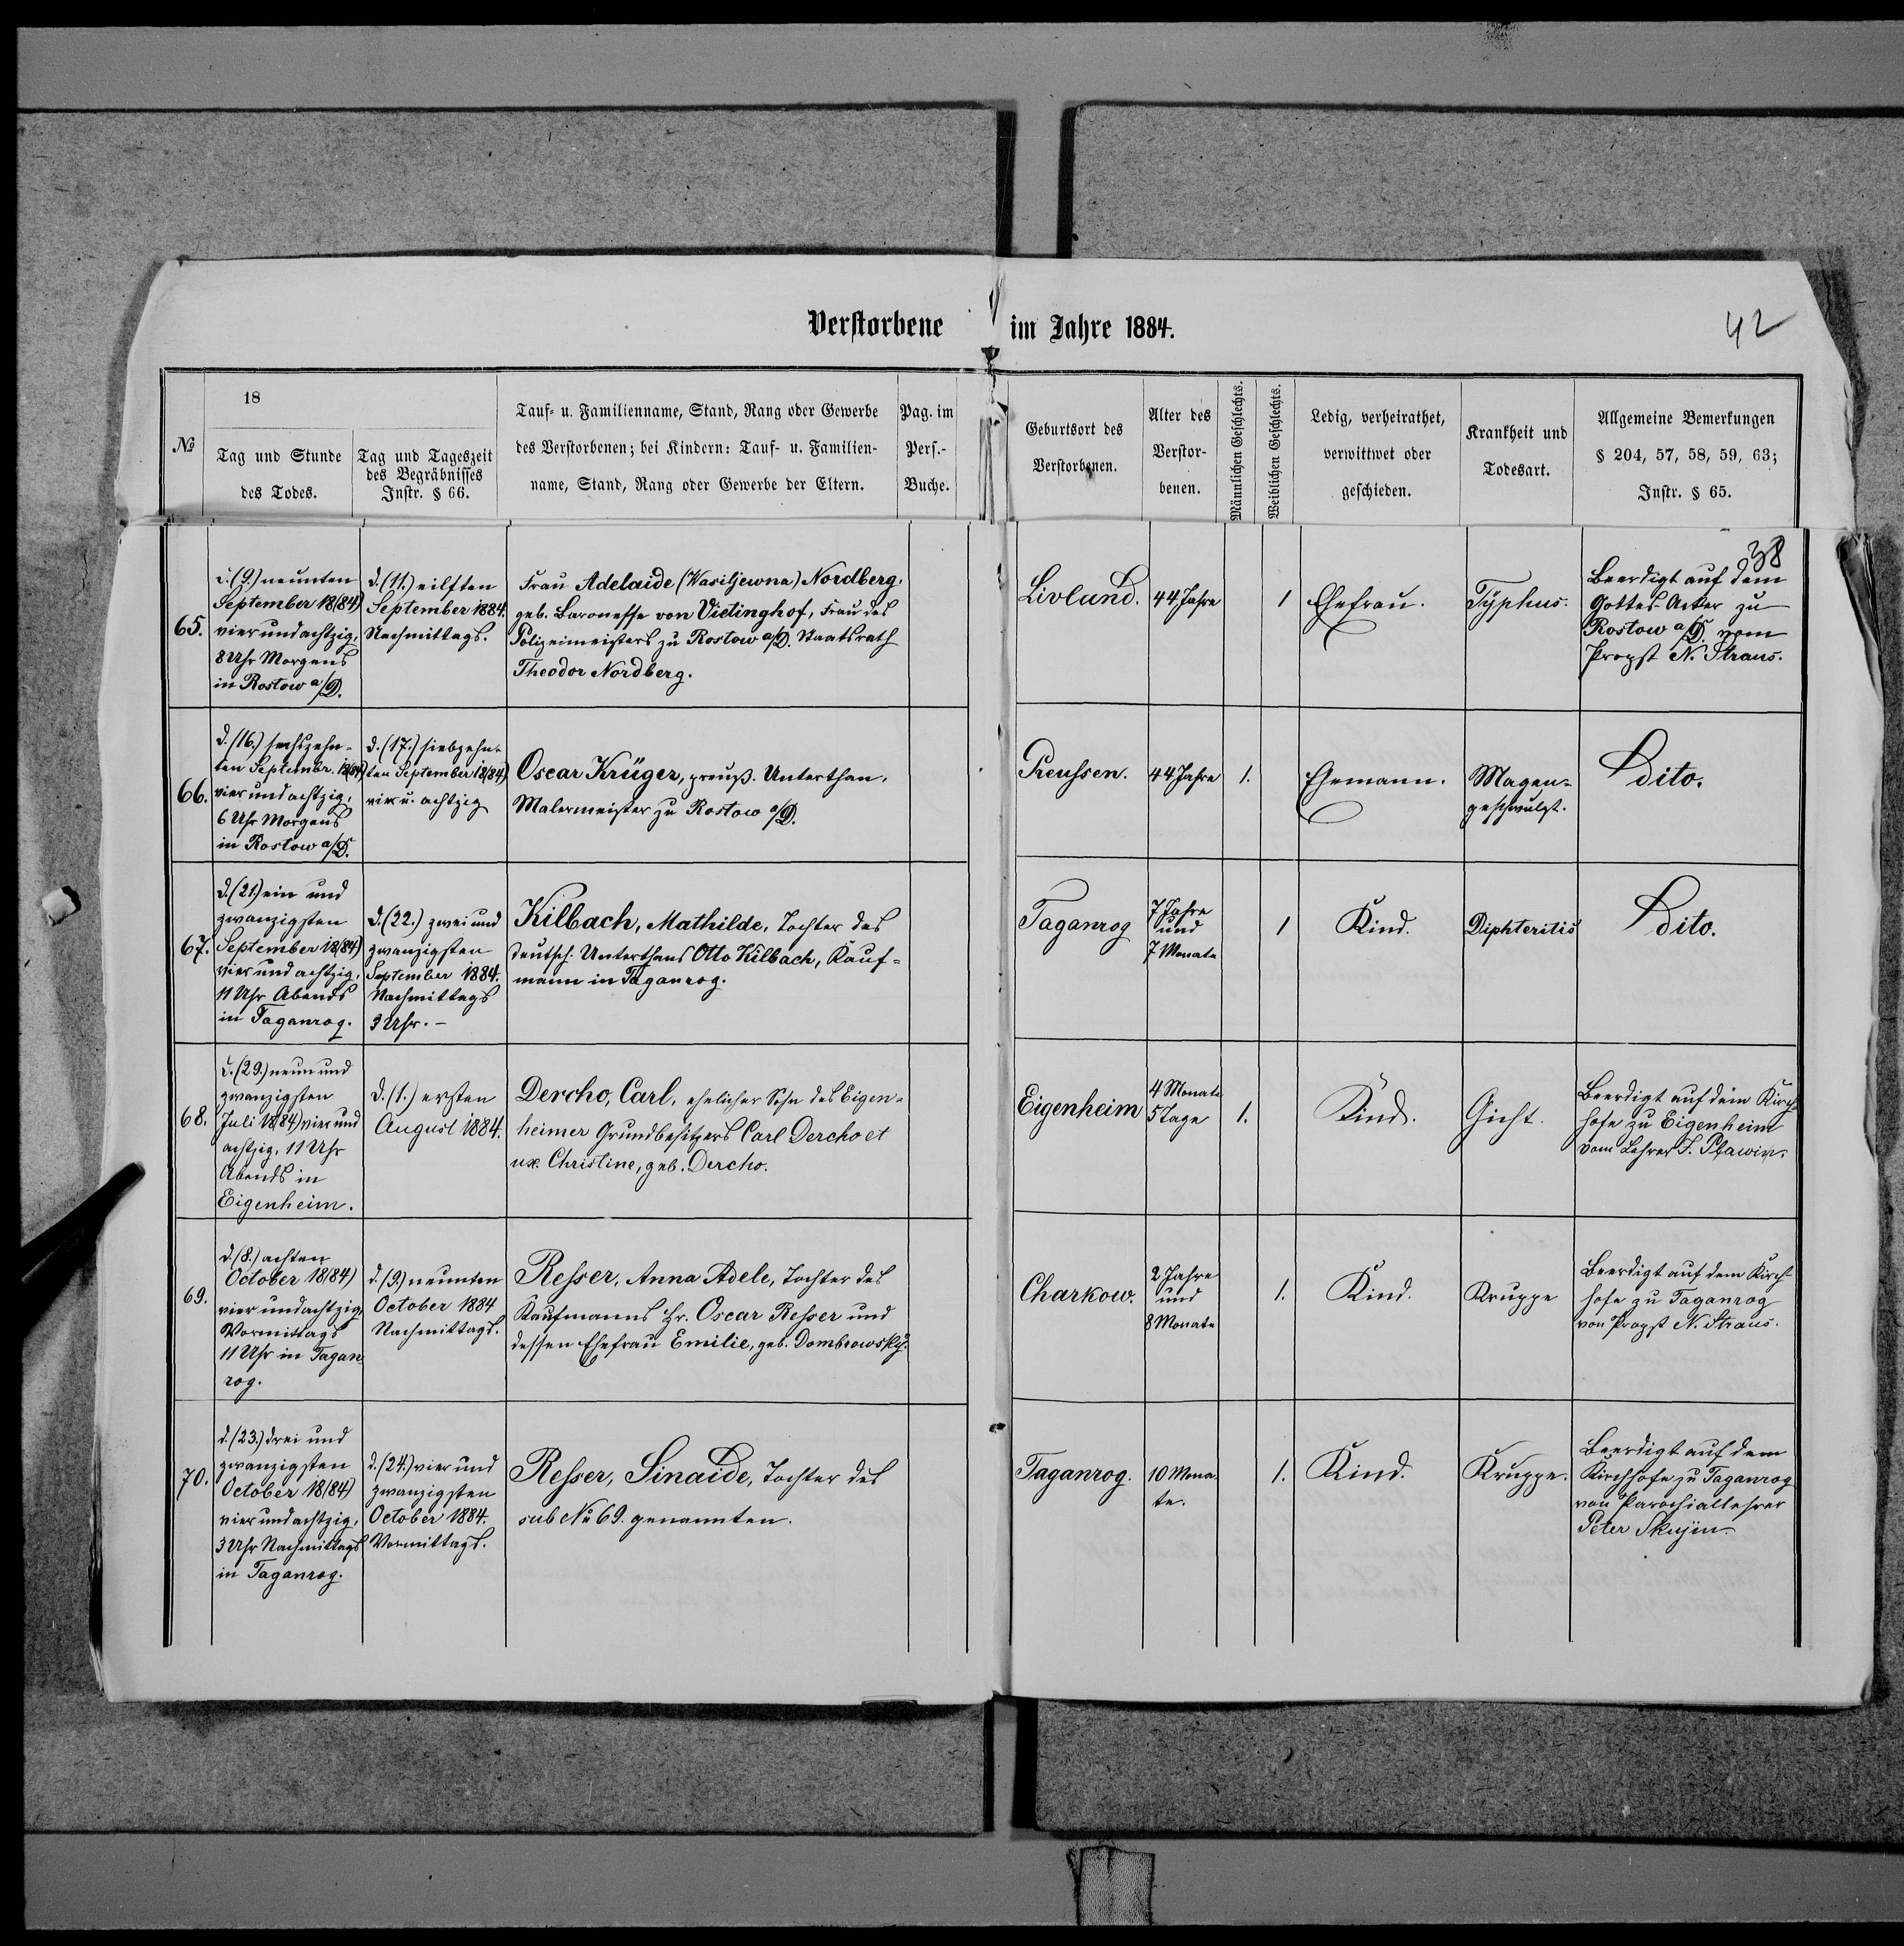 Verstorbene im Jahre 1884.
42
18
№
Tag und Stunde
des Todes.
Tag und Tageszeit
des Begräbnisses
Instr. § 66.
Tauf- u. Familienname, Stand, Rang oder Gewerbe
des Verstorbenen; bei Kindern: Tauf- u. Familien-
name, Stand, Rang oder Gewerbe der Eltern.
Pag. im
Pers.-
Buche.
Geburtsort des
Verstorbenen.
Alter des
Verstor-
benen.
Männlichen Geschlechts.
Weiblichen Geschlechts.
Ledig, verheirathet,
verwittwet oder
geschieden.
Krankheit und
Todesart.
Allgemeine Bemerkungen
§ 204, 57, 58, 59, 63;
Instr. § 65.
38
65.
d. (9.) neunten
September 18(84)
vier und achtzig,
8 Uhr Morgens
in Rostow a/D.
d. (11.) eilften
September 1884.
Nachmittags.
Frau Adelaide (Wasiljewna) Nordberg,
geb. Baronesse von Vietinghof, Frau des
Polizeimeisters zu Rostow a/D. Staatsrath
Theodor Nordberg.
Livland.
44 Jahre
1
Ehefrau.
Typhus.
Beerdigt auf dem
Gottes-Acker zu
Rostow a/D. vom
Propst N. Straus.
66.
d. (16.) sechszehn-
ten Septembr. 18(84)
vier und achtzig,
6 Uhr Morgens
in Rostow a/D.
d. (17.) siebzehn-
ten September 18(84)
vier u. achtzig
Oscar Krüger, preuß. Unterthan,
Malermeister zu Rostow a/D.
Preussen.
44 Jahre
1.
Ehemann.
Magen-
geschwulst.
Dito.
67.
d. (21.) ein und
zwanzigsten
September 18(84)
vier und achtzig,
11 Uhr Abends
in Taganrog.
d. (22.) zwei und
zwanzigsten
September 1884.
Nachmittags
3 Uhr. –
Kilbach, Mathilde, Tochter des
deutsch. Unterthans Otto Kilbach, Kauf-
mann in Taganrog.
Taganrog
7 Jahre
und
7 Monate
1
Kind.
Diphteritis
Dito.
68.
d. (29.) neun und
zwanzigsten
Juli 18(84) vier und
achtzig, 11 Uhr
Abends in
Eigenheim.
d. (1.) ersten
August 1884.
Dercho, Carl, ehelicher Sohn des Eigen-
heimer Grundbesitzers Carl Dercho et
ux. Christine, geb. Dercho.
Eigenheim
4 Monate
5 Tage
1.
Kind.
Gicht.
Beerdigt auf dem Kirch-
hofe zu Eigenheim
vom Lehrer J.
69.
d. (8.) achten
October 18(84)
vier und achtzig
Vormittags
11 Uhr in Tagan
rog.
d. (9.) neunten
October 1884
Nachmittags.
Resser, Anna Adele, Tochter des
Kaufmanns Hr. Oscar Resser und
dessen Ehefrau Emilie, geb. Dombrowsky.
Charkow.
2 Jahre
und
8 Monate
1.
Kind.
Kruppe
Beerdigt auf dem Kirch-
hofe zu Taganrog
von Propst N. Straus.
70.
d. (23.) drei und
zwanzigsten
October 18(84)
vier und achtzig,
3 Uhr Nachmittags
in Taganrog.
d. (24.) vier und
zwanzigsten
October 1884.
Vormittags.
Resser, Sinaide, Tochter des
sub № 69. genannten.
Taganrog.
10 Mona-
te.
1.
Kind.
Kruppe.
Beerdigt auf dem
Kirchhofe zu Taganrog
von Parochiallehrer
Peter Skujin